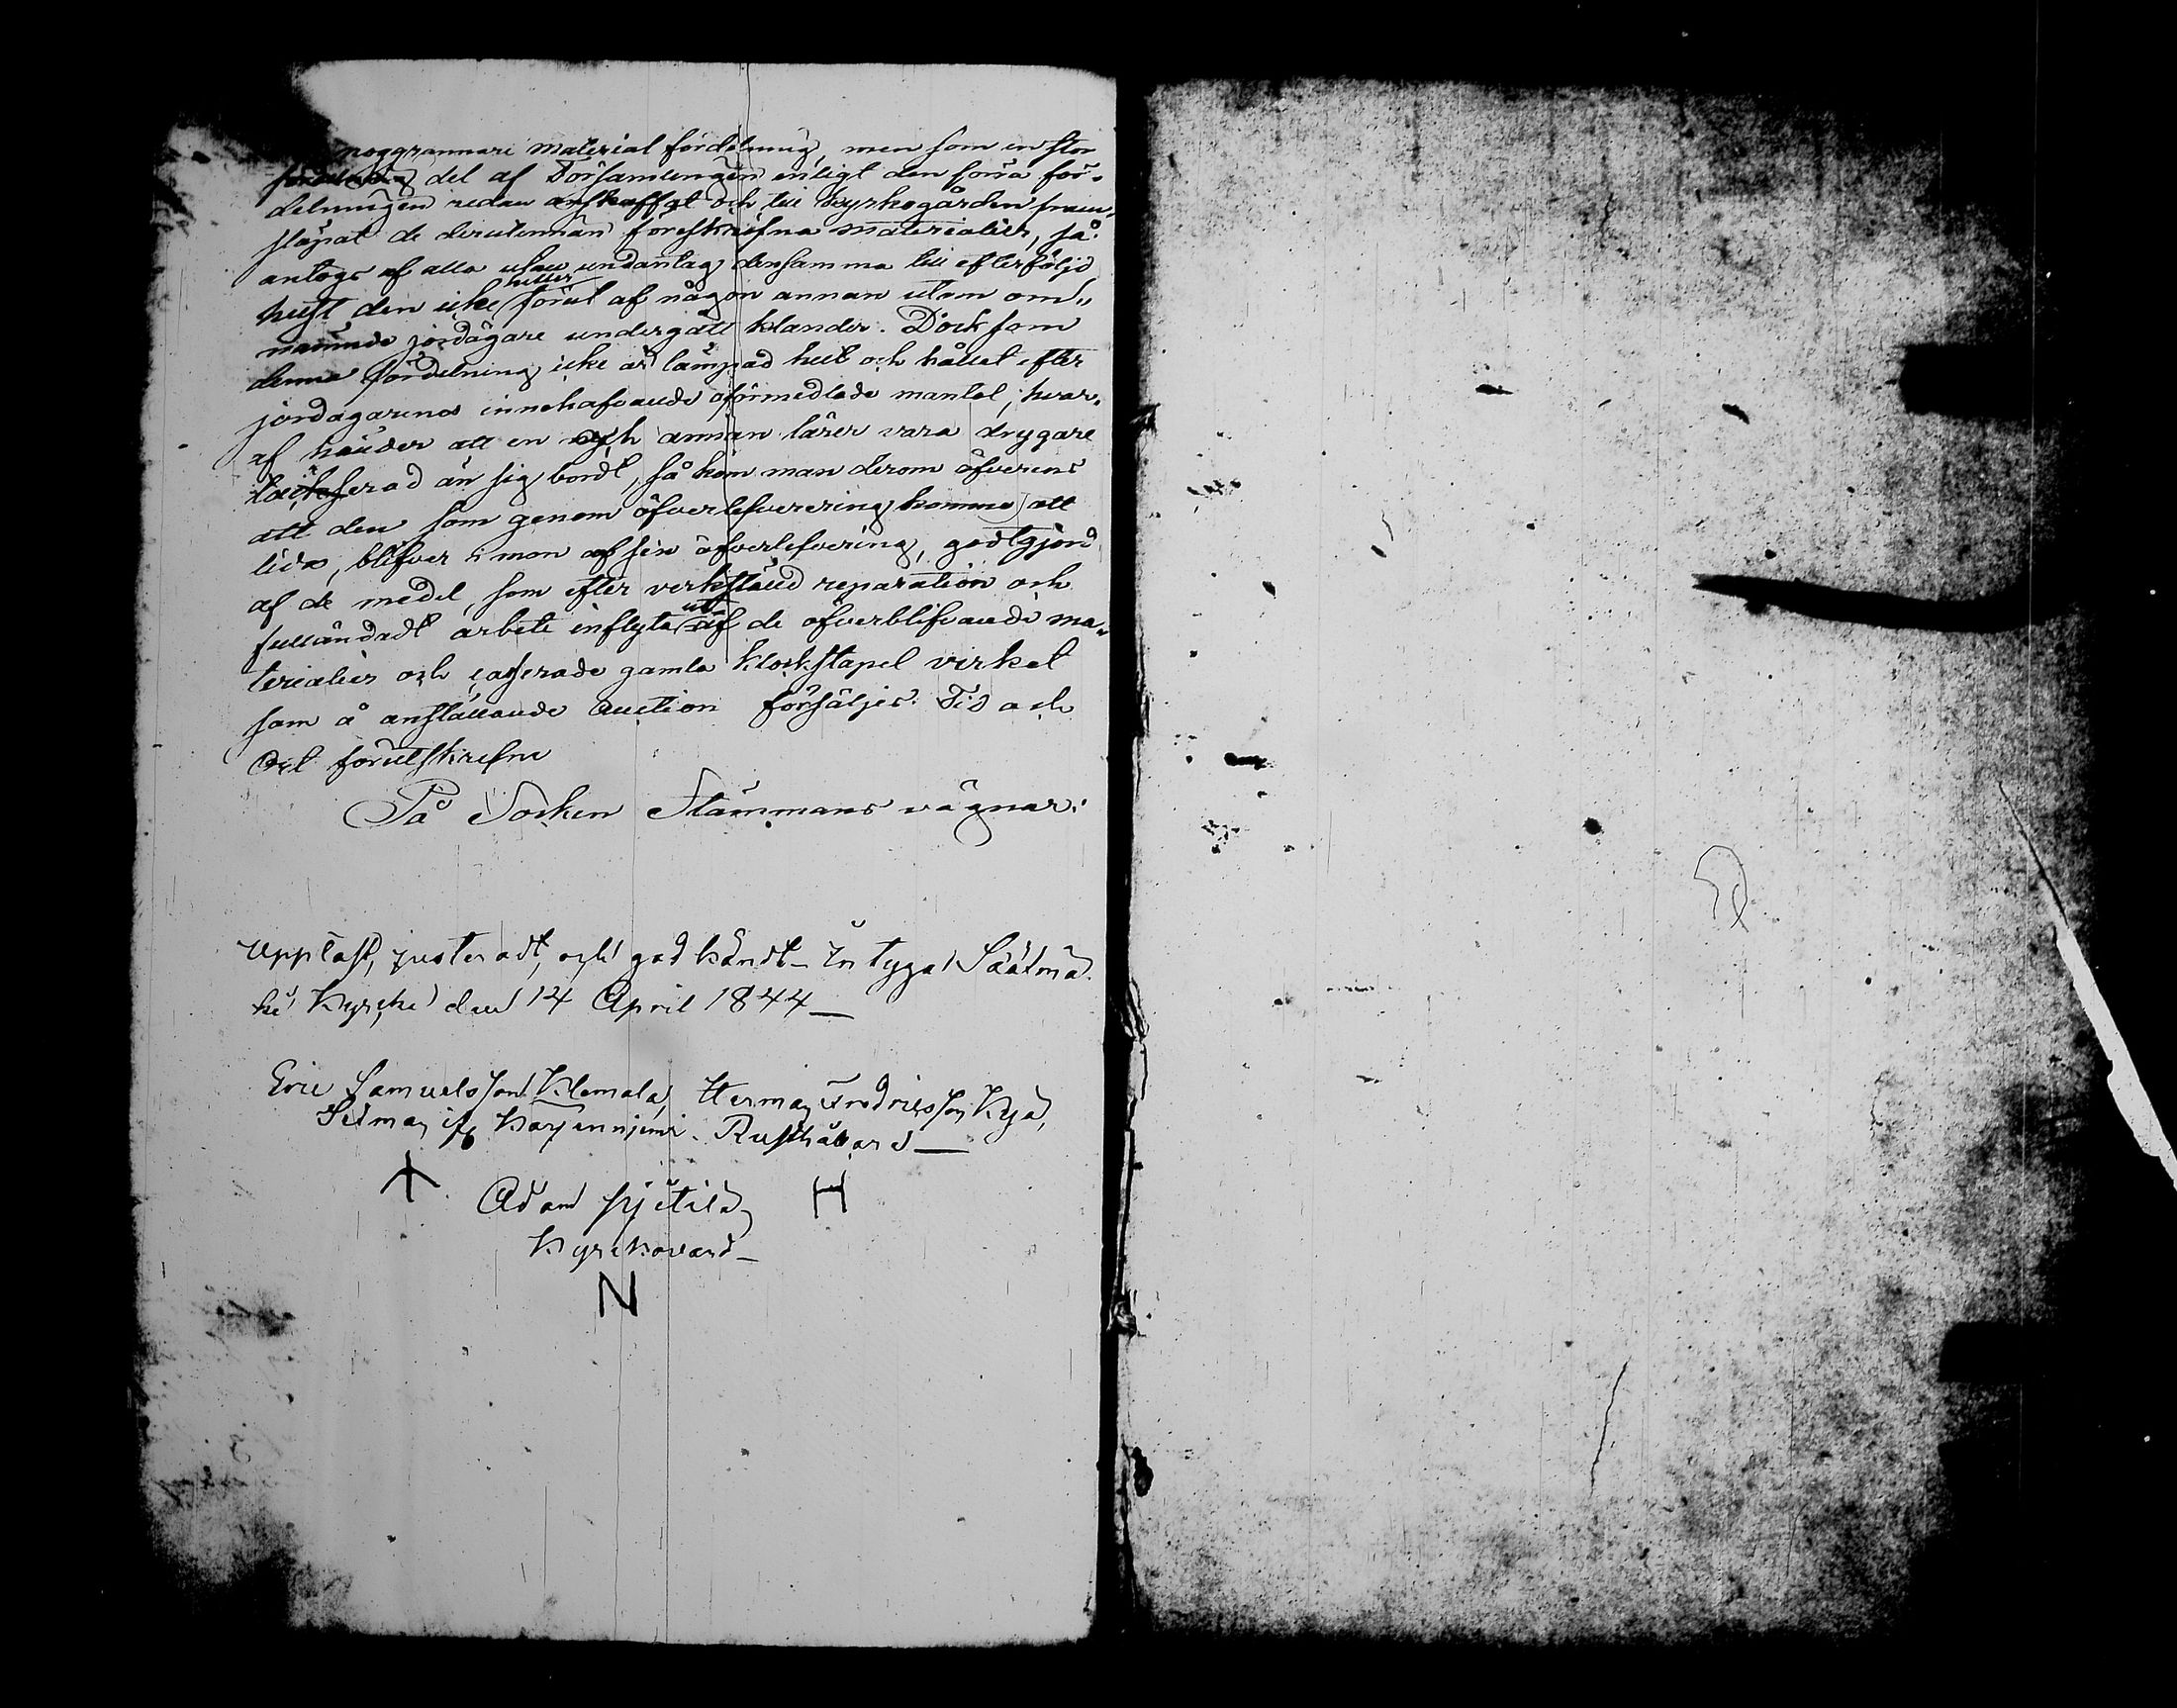 noggrannare material fördelning, men som en stor
del af Församlingen enligt den förra för-
delningen redan anskaffat och till kyrkogården fram-
släpat de derutinnan föreskrifna materialier, så
antogs af alla utan undantag densamma till efterföljd
helst den icke heller förut af någon annan utom om-
nämnde jordägare undergått klander. Dock som
denna fördelning icke är lämpad helt och hållet efter
jordägarenas innehafvande oförmedlade mantal, hvar-
af händer att en och annan lärer vara drygare
taxerad än sig bordt, så kom man derom öfverens
att den som genom öfverlefverering komme att
lida, blifver i mon af sin öfverlefvering, godtgjord
af de medel, som efter verkställd reparation och
fulländadt arbete inflyta utaf de öfverblifvande ma-
terialier och casserade gamla klockstapel virket
som å anställande auction försäljes. Tid och
Ort förutskrefne
På Socken Stämmans vägnar:
Uppläst, justeradt, och godkändt Intyga Säätmä
ki Kyrcka den 14 April 1844
Eric Samuelsson Klemola, Herman Fredricsson Kyä,
Seiman if Karjenniemi. Rusthållare
Adam Pjetilä
Kyrckovard
N H